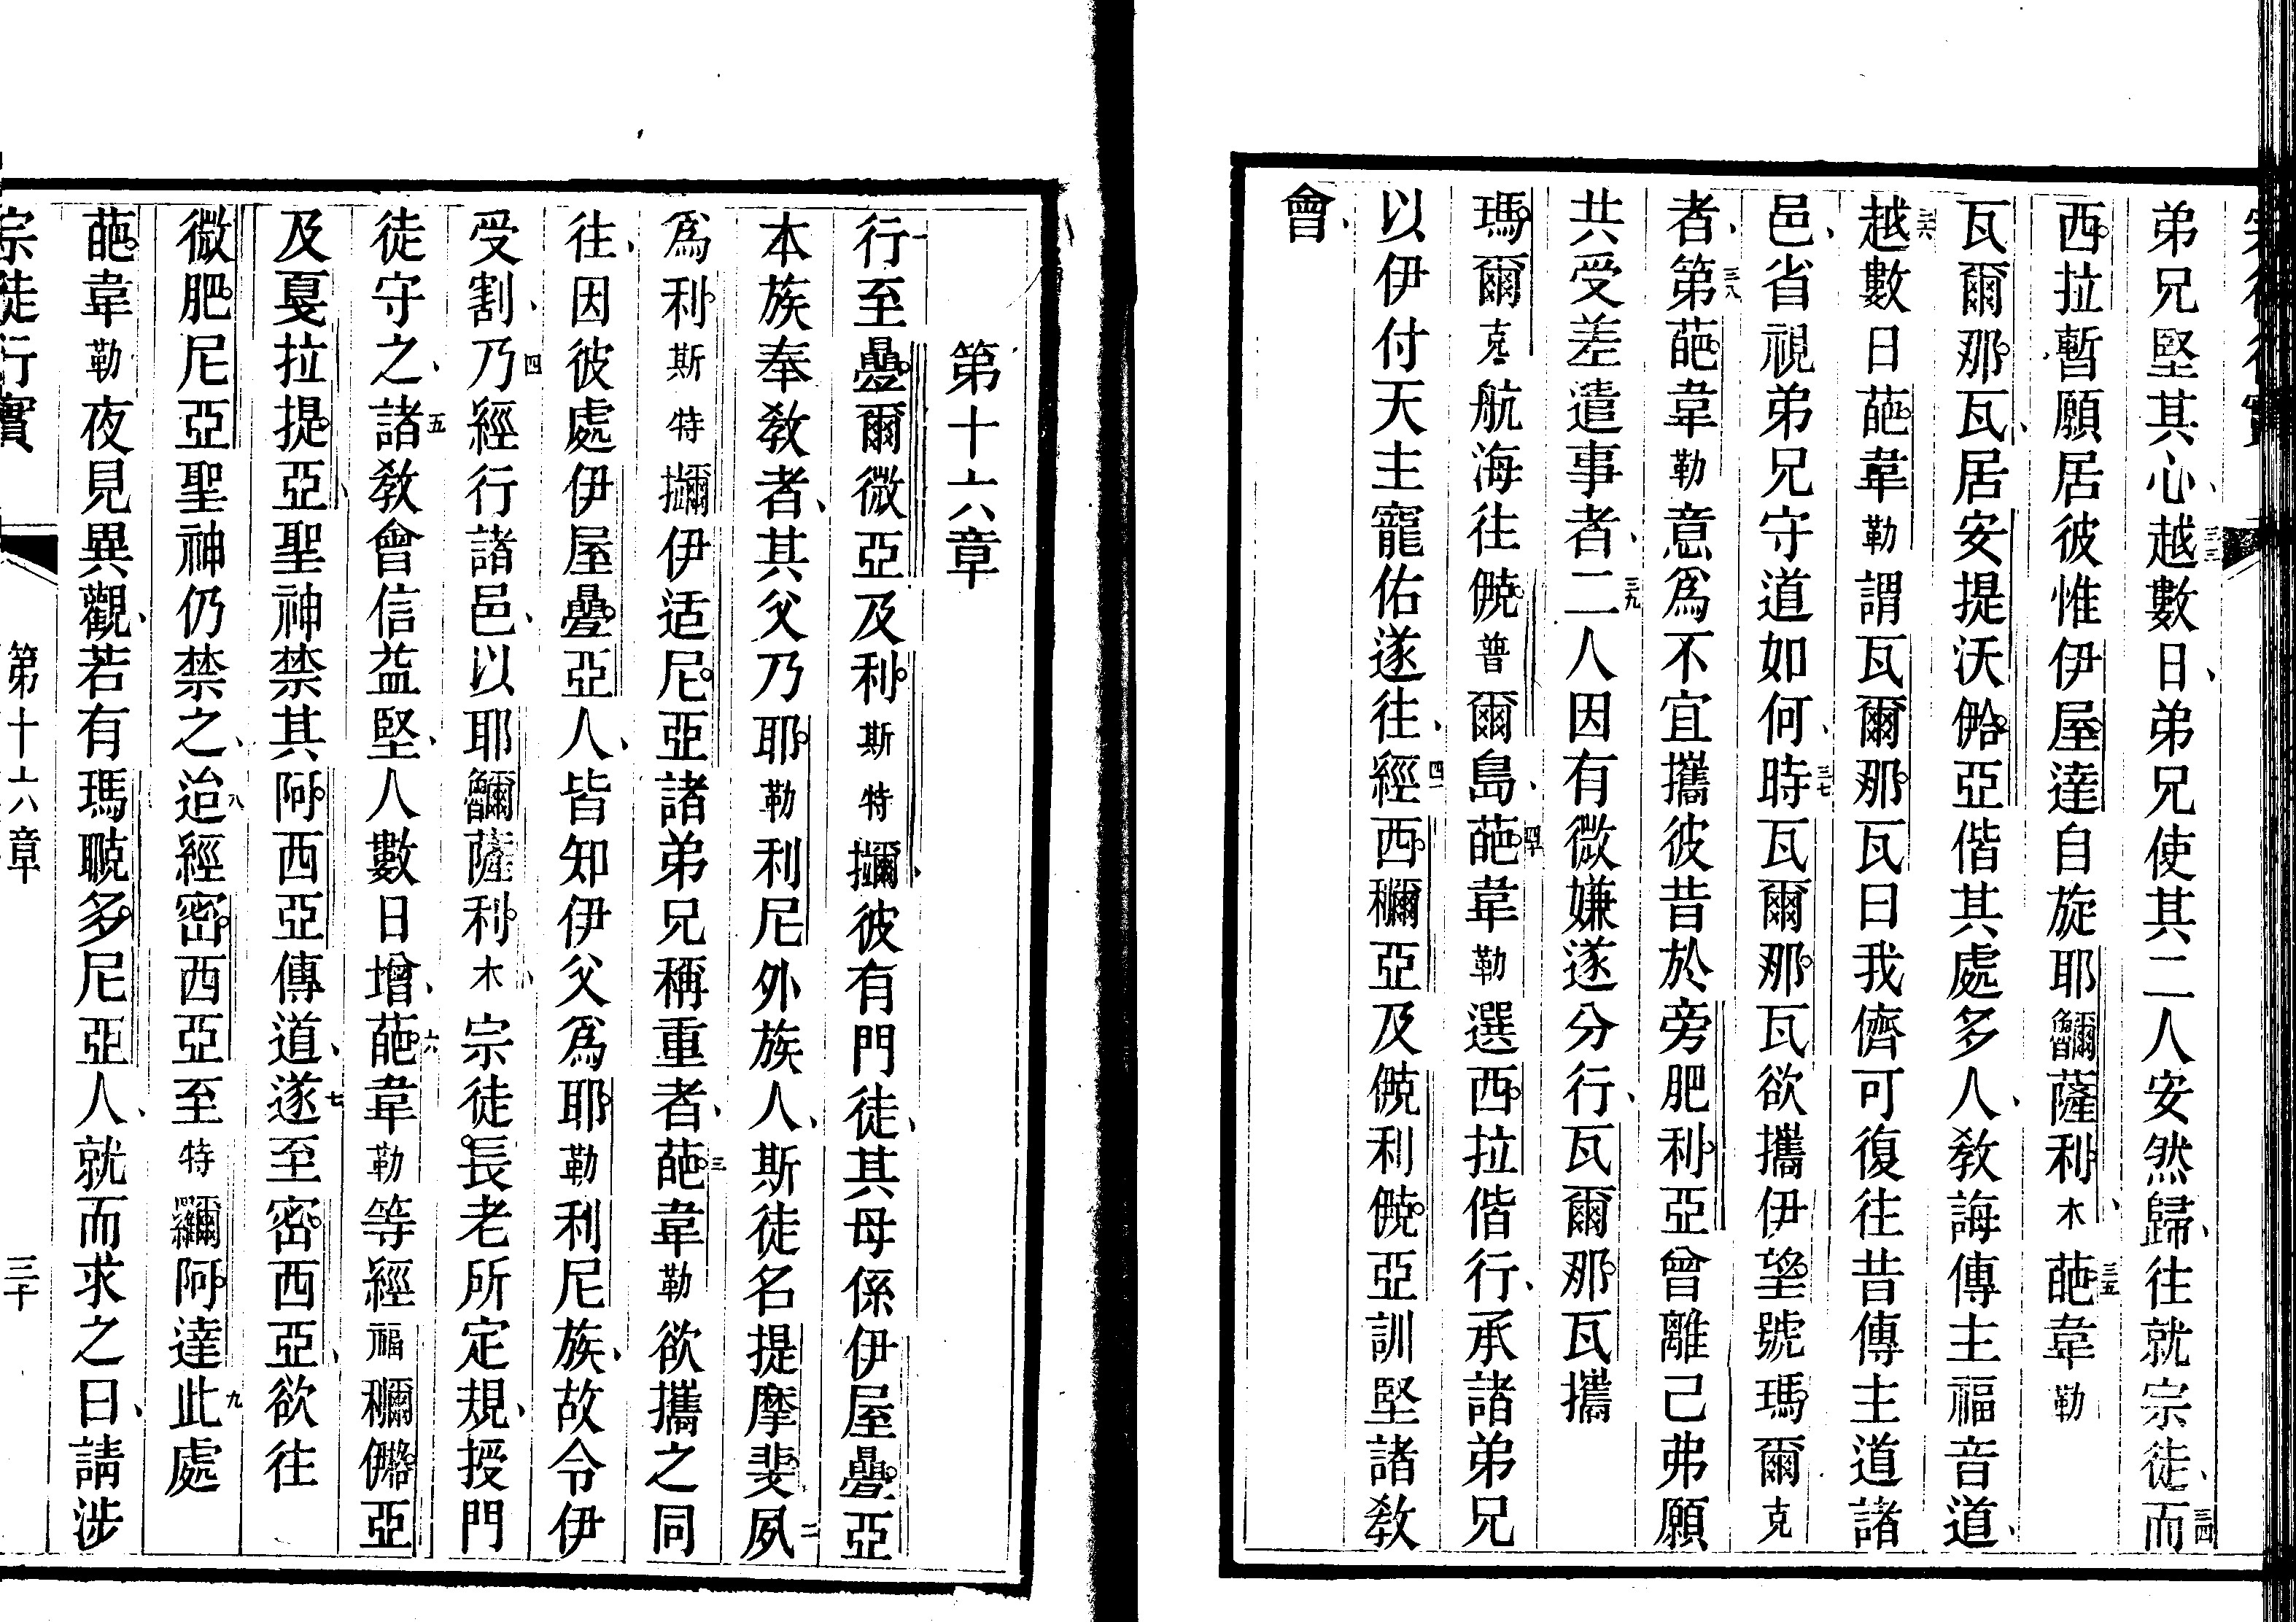 弟兄堅其心、三三越數日、弟兄使其二人安然歸、往就宗徒、三四而
西拉暫願居彼惟伊屋達自旋耶𧥺薩利木、三五葩韋勒
瓦爾那瓦、居安提沃佮亞偕其處多人、教誨傳主福音道、
三六越數日葩韋勒謂瓦爾那瓦曰我儕可復往昔傳主道諸
邑、省視弟兄守道如何、三七時瓦爾那瓦欲攜伊望號瑪爾克
者、三八第葩韋勒意爲不宜攜彼昔於旁肥利亞曾離己弗願
共受差遣事者、三九二人因有微嫌遂分行、瓦爾那瓦攜
瑪爾克航海往普爾島、四十葩韋勒選西拉偕行、承諸弟兄
以伊付天主寵佑遂往、四一經西亞及利亞訓堅諸教
會、
第十六章
一行至爾微亞及利斯特、彼有門徒、其母係伊屋亞
本族奉教者、其父乃耶勒利尼外族人、斯徒名提摩斐、二夙
爲利斯特伊适尼亞諸弟兄稱重者、三葩韋勒欲攜之同
往、因彼處伊屋亞人、皆知伊父爲耶勒利尼族、故令伊
受割、四乃經行諸邑、以耶薩利木、宗徒長老所定規、授門
徒守之、五諸教會信益堅、人數日增、六葩韋勒等經福亞
及戛拉提亞、聖神禁其阿西亞傳道、七遂至密西亞、欲往
微肥尼亞聖神仍禁之、八迨經密西亞至特阿達九此處
葩韋勒夜見異觀、若有瑪多尼亞人、就而求之曰、請涉
宗徒行實
第十六章
三十